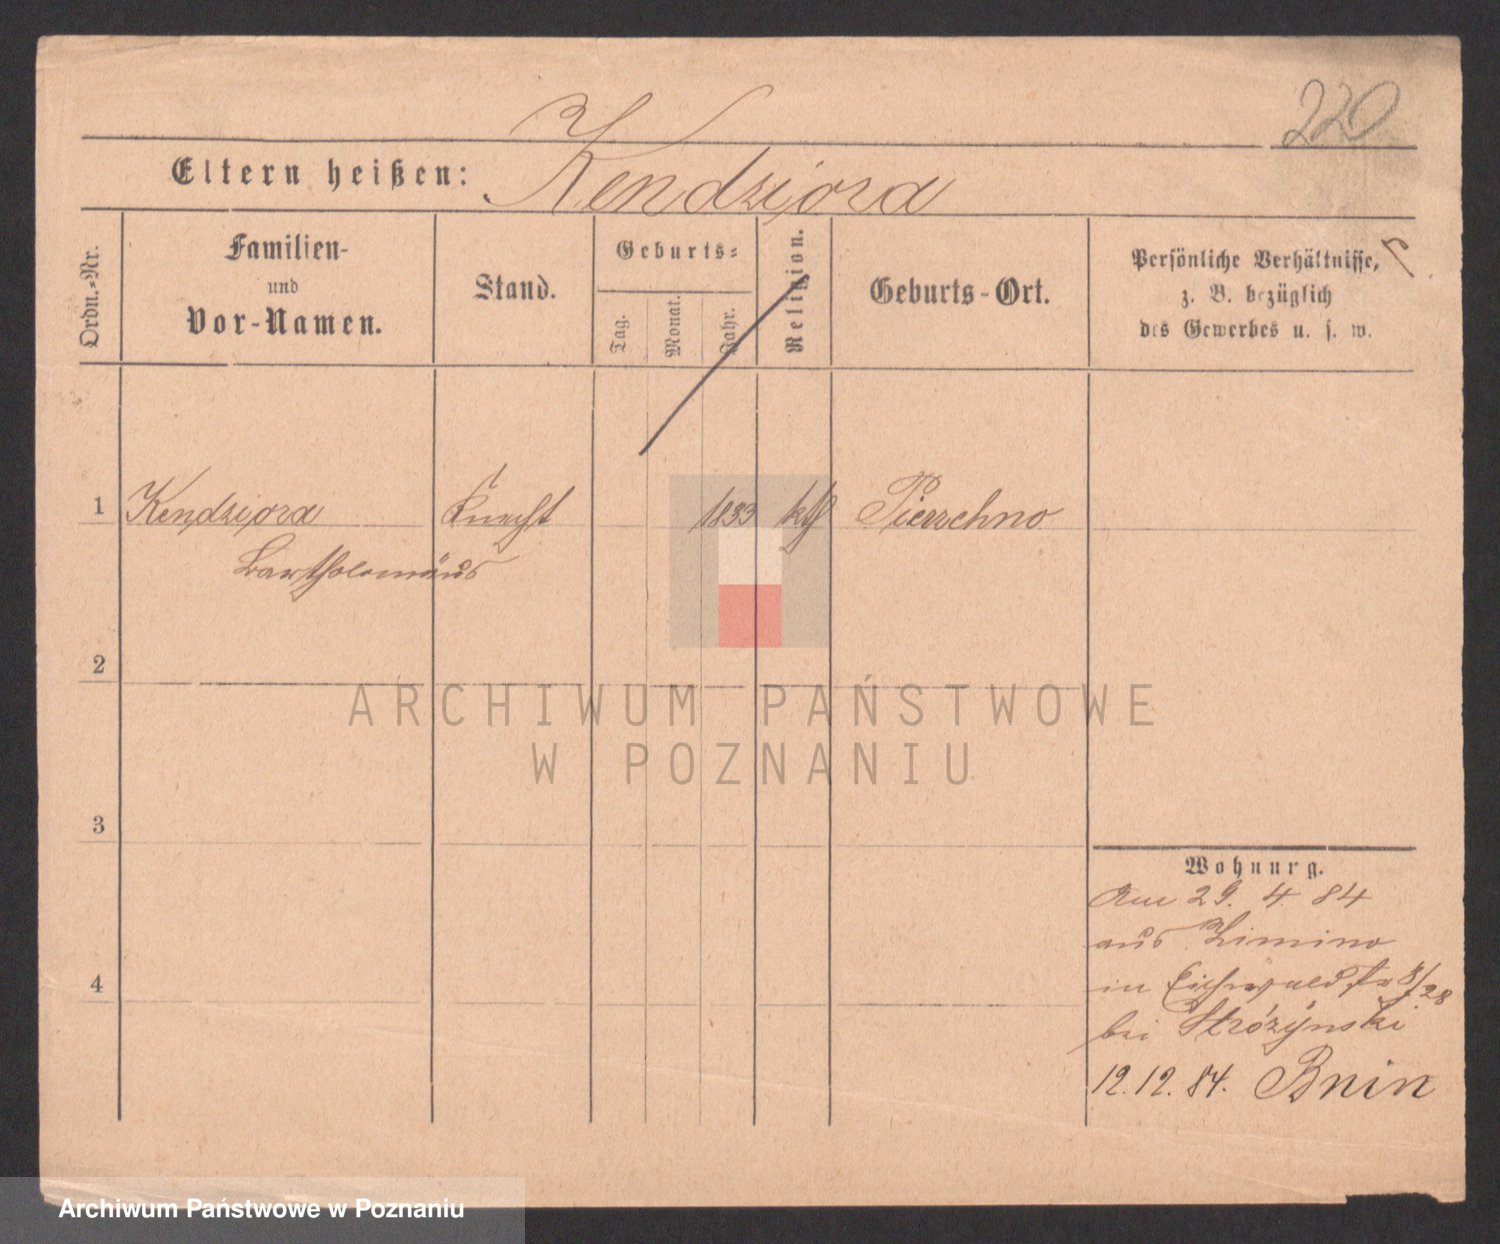 220
Eltern heißen: Kendziora
Ordn.-Nr.
Familien-
und
Vor-Namen.
Stand.
Geburts-
Tag.
Monat.
Jahr.
Religion.
Geburts-Ort.
Persönliche Verhältnisse,
z. B. bezüglich
des Gewerbes u. s. w.
1 Kendziora Knecht 1833 kth Pierzchno
Bartholomäus
2
3
4
Wohnung.
Am 29. 4. 84
aus Zimino
in Eichwaldstr 8/28
bei Strózynski
12.12.84. Bnin
ARCHIWUM PAŃSTWOWE
W POZNANIU
Archiwum Państwowe w Poznaniu